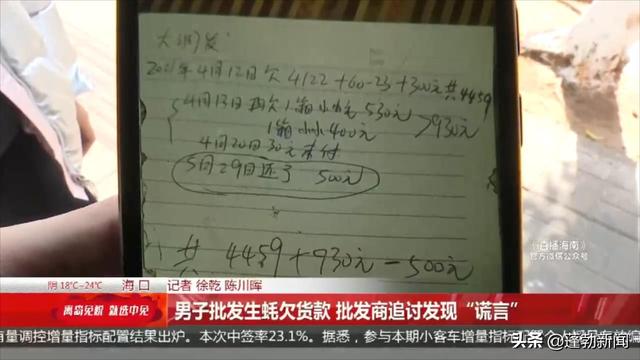 大润发
2021年4月12日欠 4122+60-23+300元 共4459
4月13日再欠1箱小 530元 >930元
1箱小小 400元
4月20日 30元未付
5月29日还了 500元
共 4459+930元-500元
《直播海南》
官方微信公众号
阴 18℃~24℃ 海口
记者 徐乾 陈川晖
离岛免税 就选中免
男子批发生蚝欠货款 批发商追讨发现“谎言”
量调控增量指标配置结果出炉。本次中签率23.1%。据悉，参与本期小客车增量指标配
头条 @蓬勃新闻